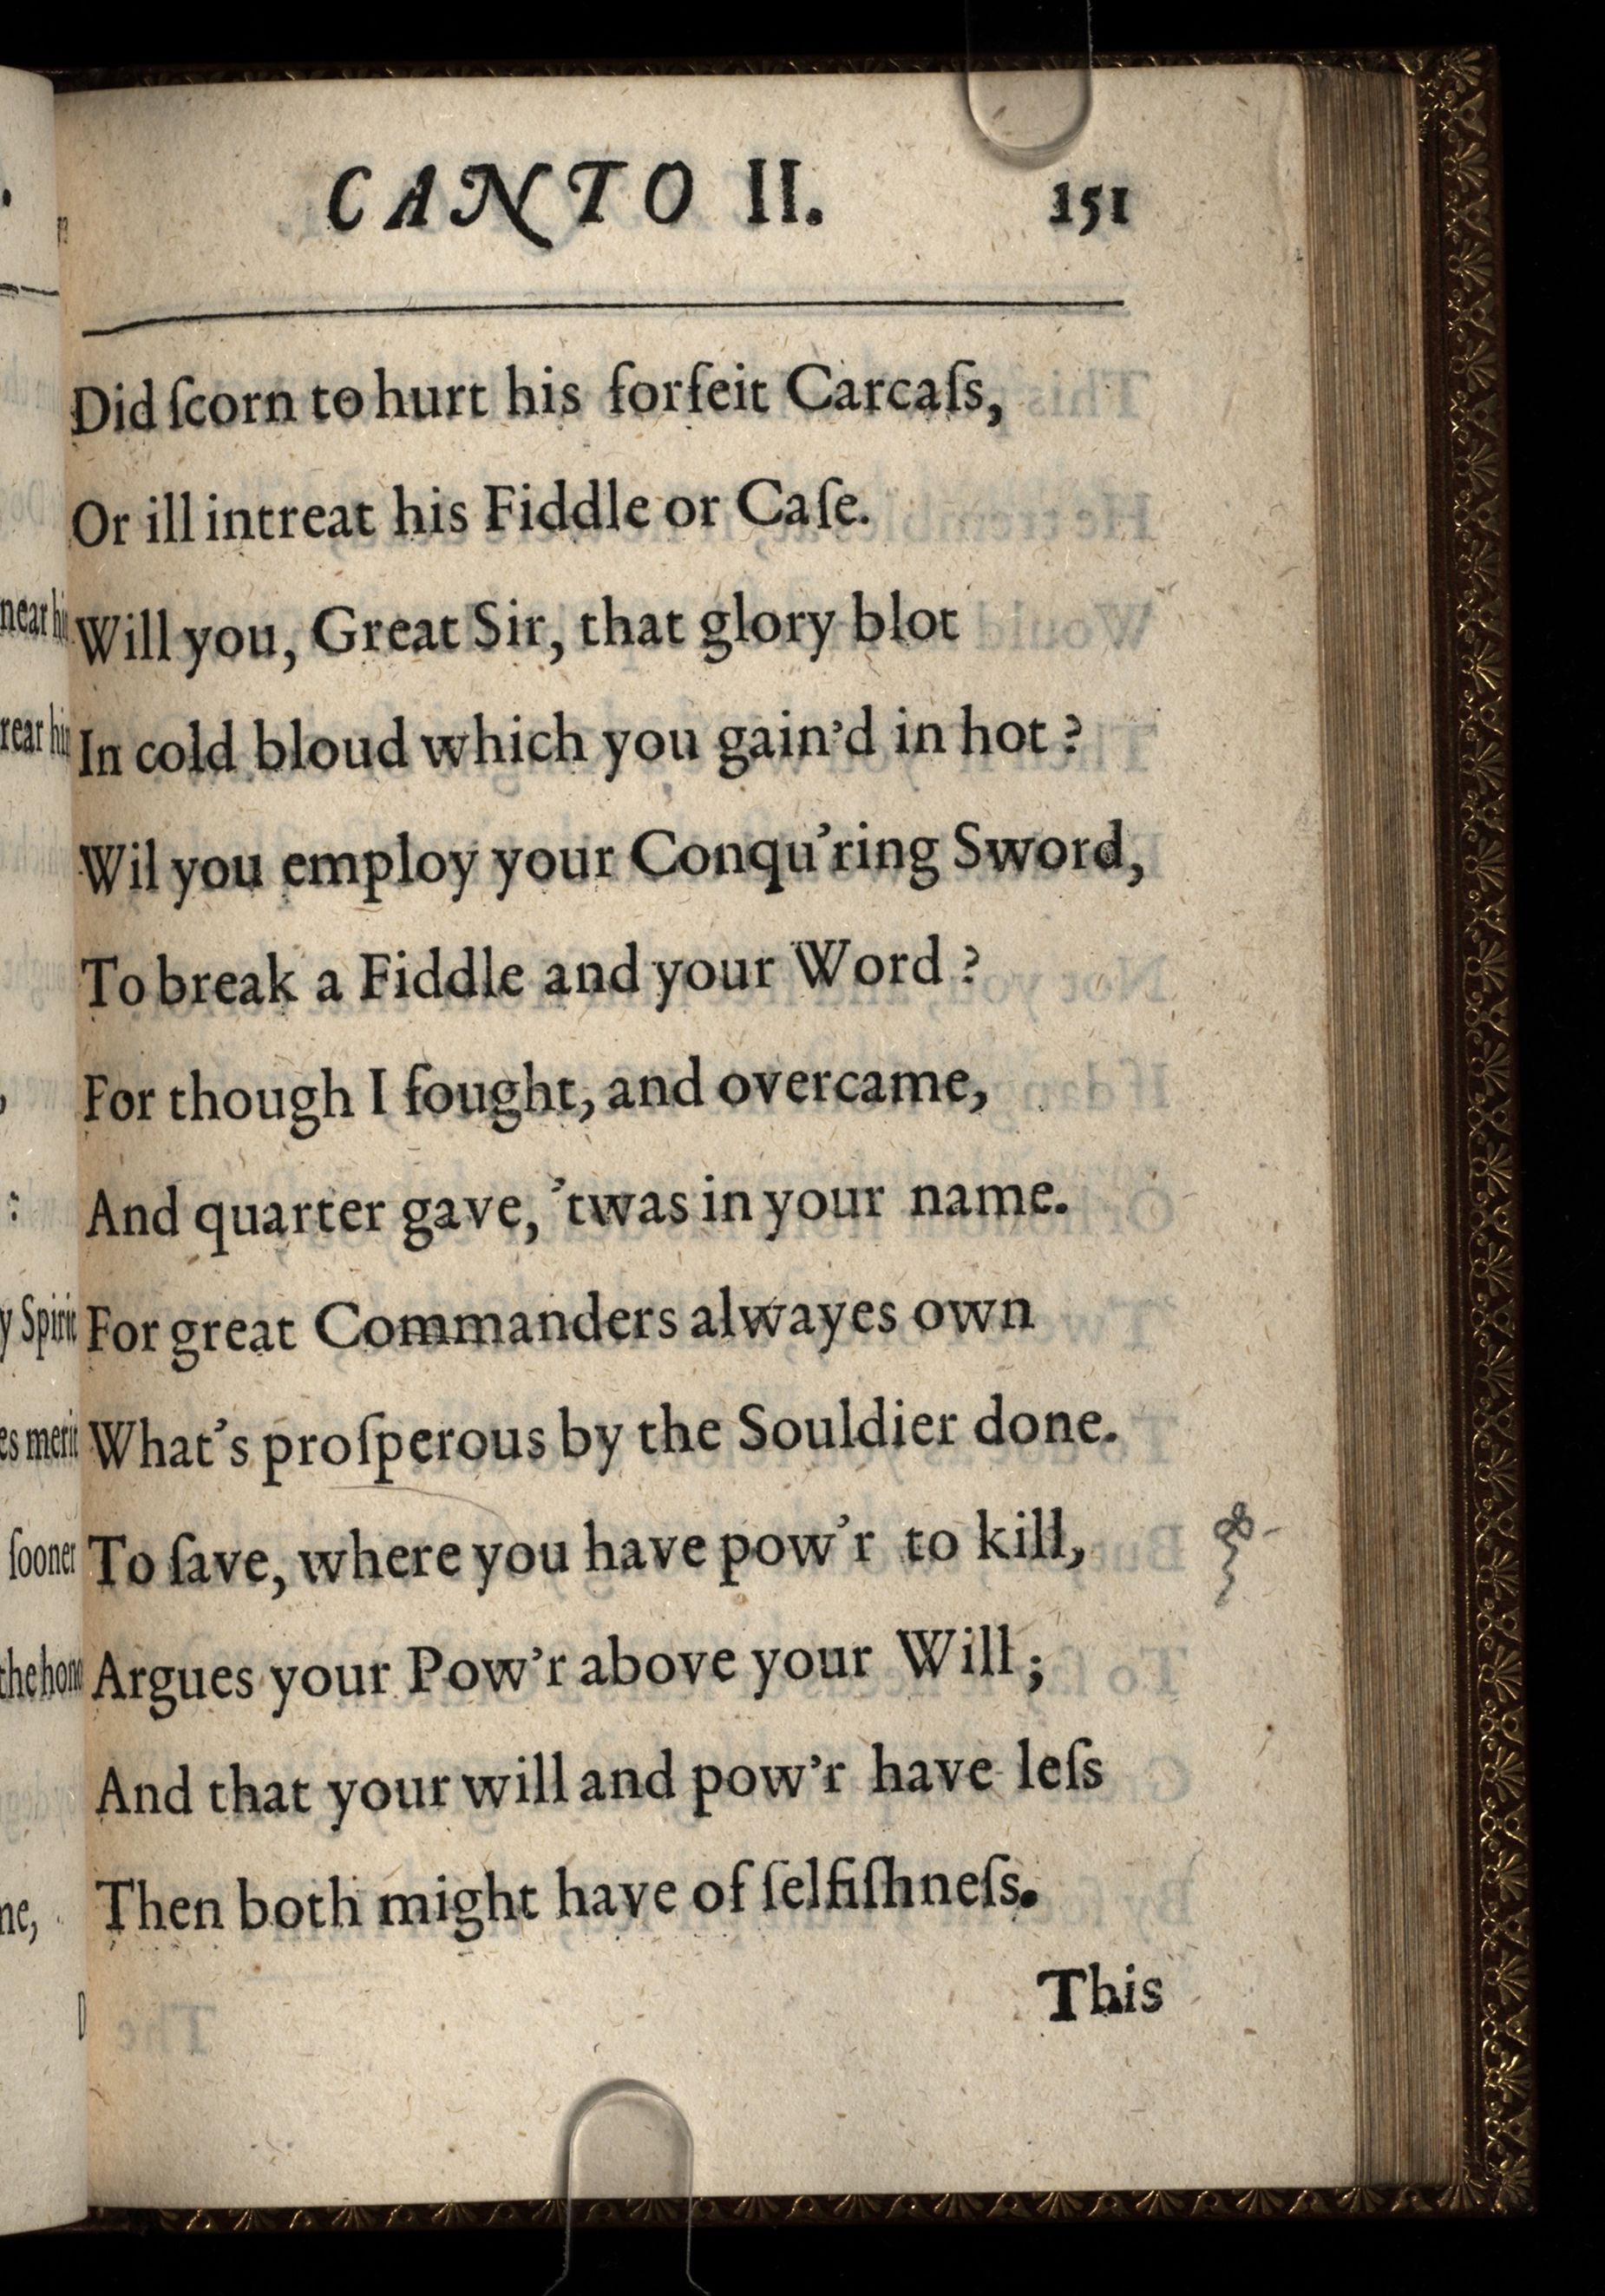 CANTO II. 151
Did ſcorn to hurt his forfeit Carcaſs,
Or ill intreat his Fiddle or Caſe.
Will you, Great Sir, that glory blot
In cold bloud which you gain'd in hot ?
Wil you employ your Conqu'ring Sword,
To break a Fiddle and your Word ?
For though I fought, and overcame,
And quarter gave, 'twas in your name.
For great Commanders alwayes own
What's proſperous by the Souldier done.
To ſave, where you have pow'r to kill,
Argues your Pow'r above your Will ;
And that your will and pow'r have leſs
Then both might have of ſelfiſhneſs.
This